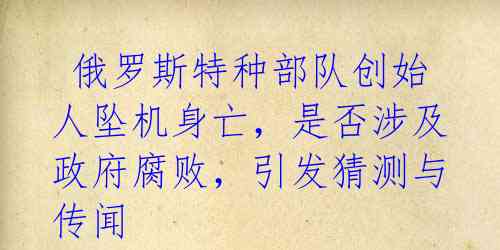 俄罗斯特种部队创始
人坠机身亡，是否涉及
政府腐败，引发猜测与
传闻